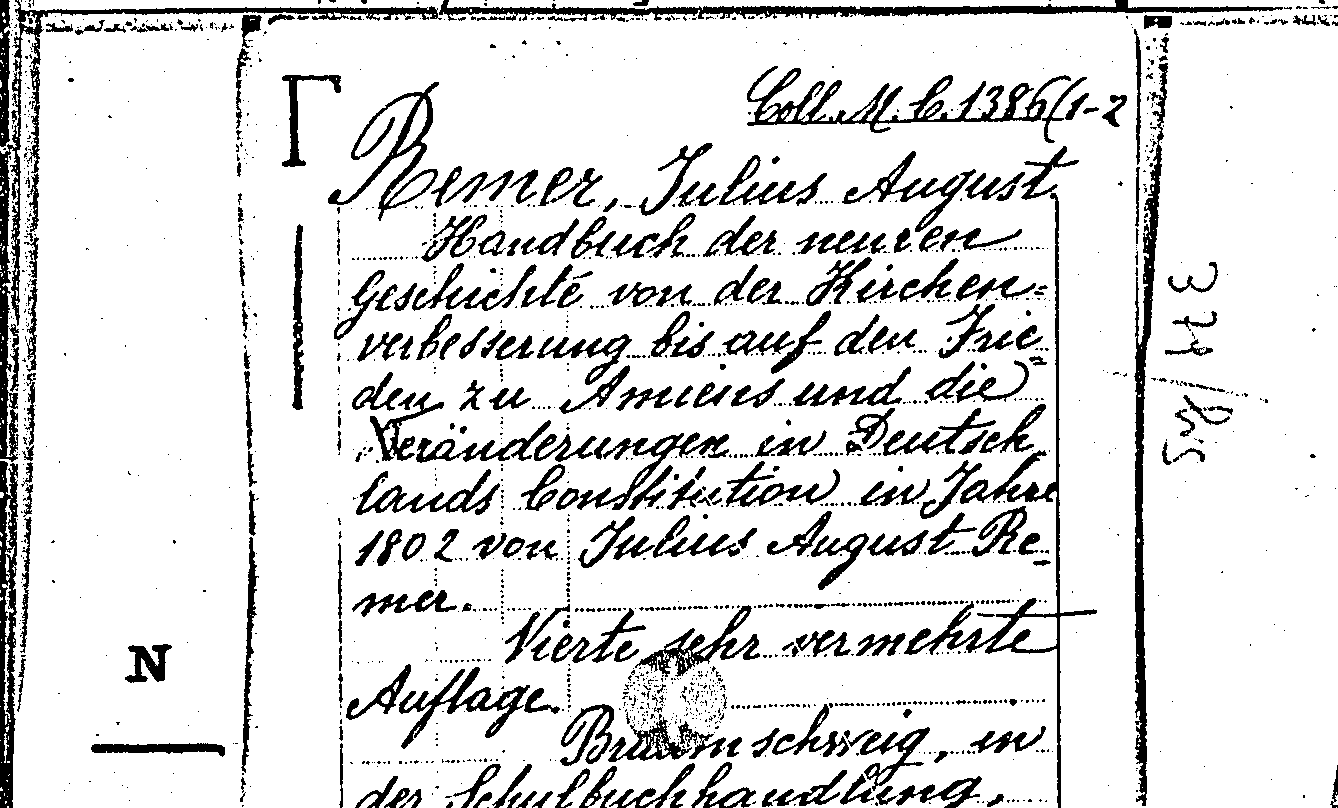 Coll. M. C. 1386(1-2
Remer, Julius August.
Handbuch der neuren
Geschichte von der Kirchen-
verbesserung bis auf den Frie-
den zu Amiens und die
Veränderungen in Deutsch
lands Constitution in Jahre
1802 von Julius August Re-
mer.
Vierte sehr vermehrte
Auflage.
Braunschweig, in
der Schulbuchhandlung,
N